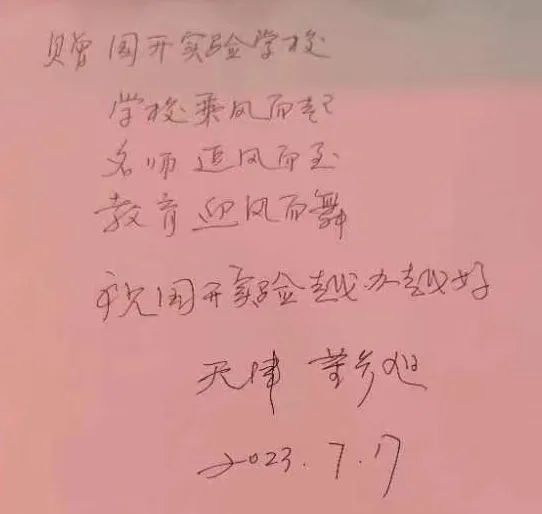 赠国开实验学校
学校乘风而起
名师追风而至
教育迎风而舞
祝国开实验越办越好
天津
2023.7.17